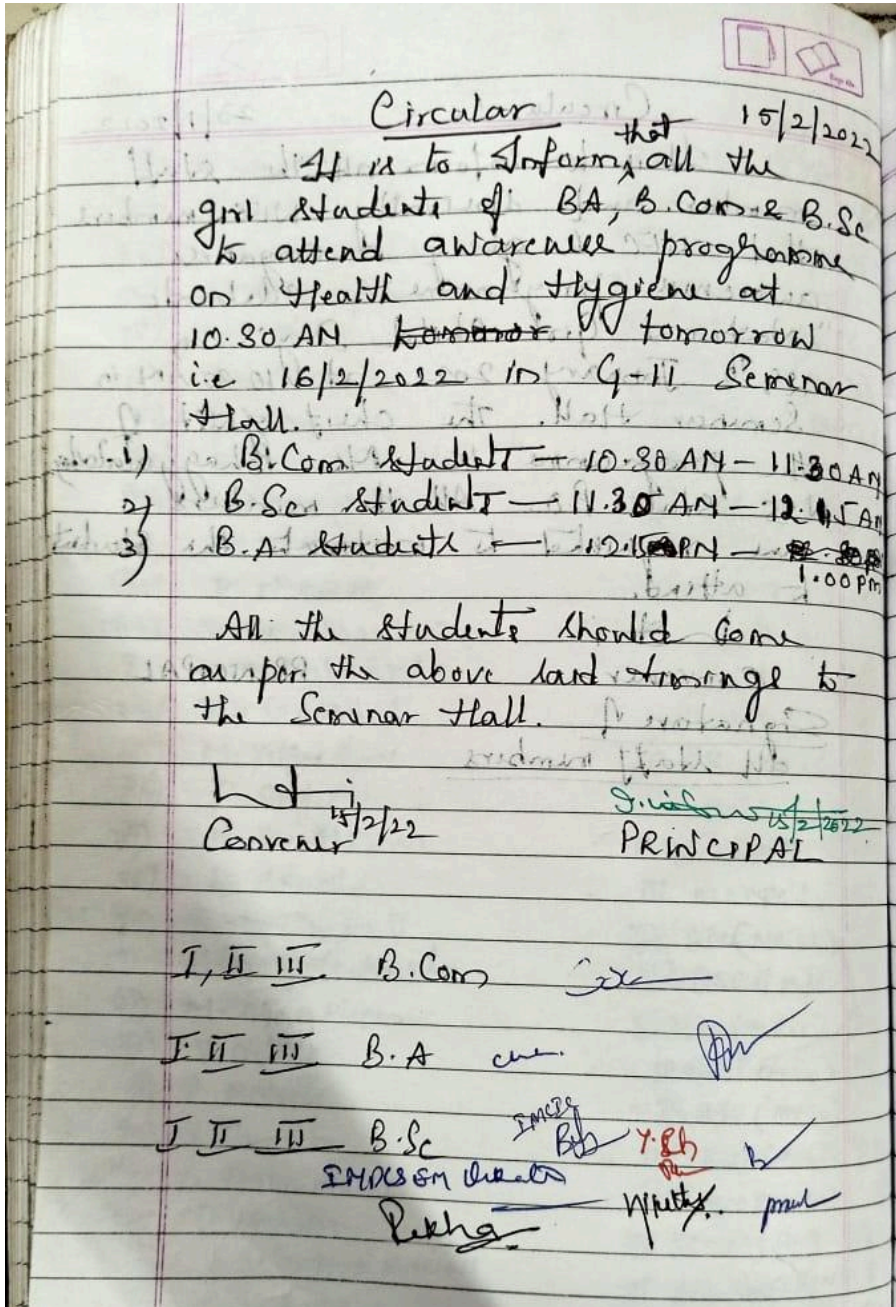 Circular 15/2/2022
It is to Inform that all the
girl students of BA, B.Com & B.Sc
to attend awareness programme
on Health and Hygiene at
10.30 AM tomorrow
i.e 16/2/2022 in G-11 Seminar
Hall.
1) B.Com students — 10.30 AM – 11.30 AM
2) B.Sc students — 11.30 AM – 12.15 AM
3) B.A students — 12.15 PM –
1.00 pm
All the students should come
as per the above said timings to
the Seminar Hall.
15/2/22 15/2/2022
Convener PRINCIPAL
I, II III B.Com
I II III B.A
I II III B.Sc
Rekha